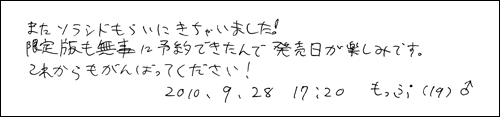 またソラシドもらいにきちゃいました!
限定版も無事に予約できたんで発売日が楽しみです。
これからもがんばってください!
2010、9、28 17:20 もっぷ(19)♂